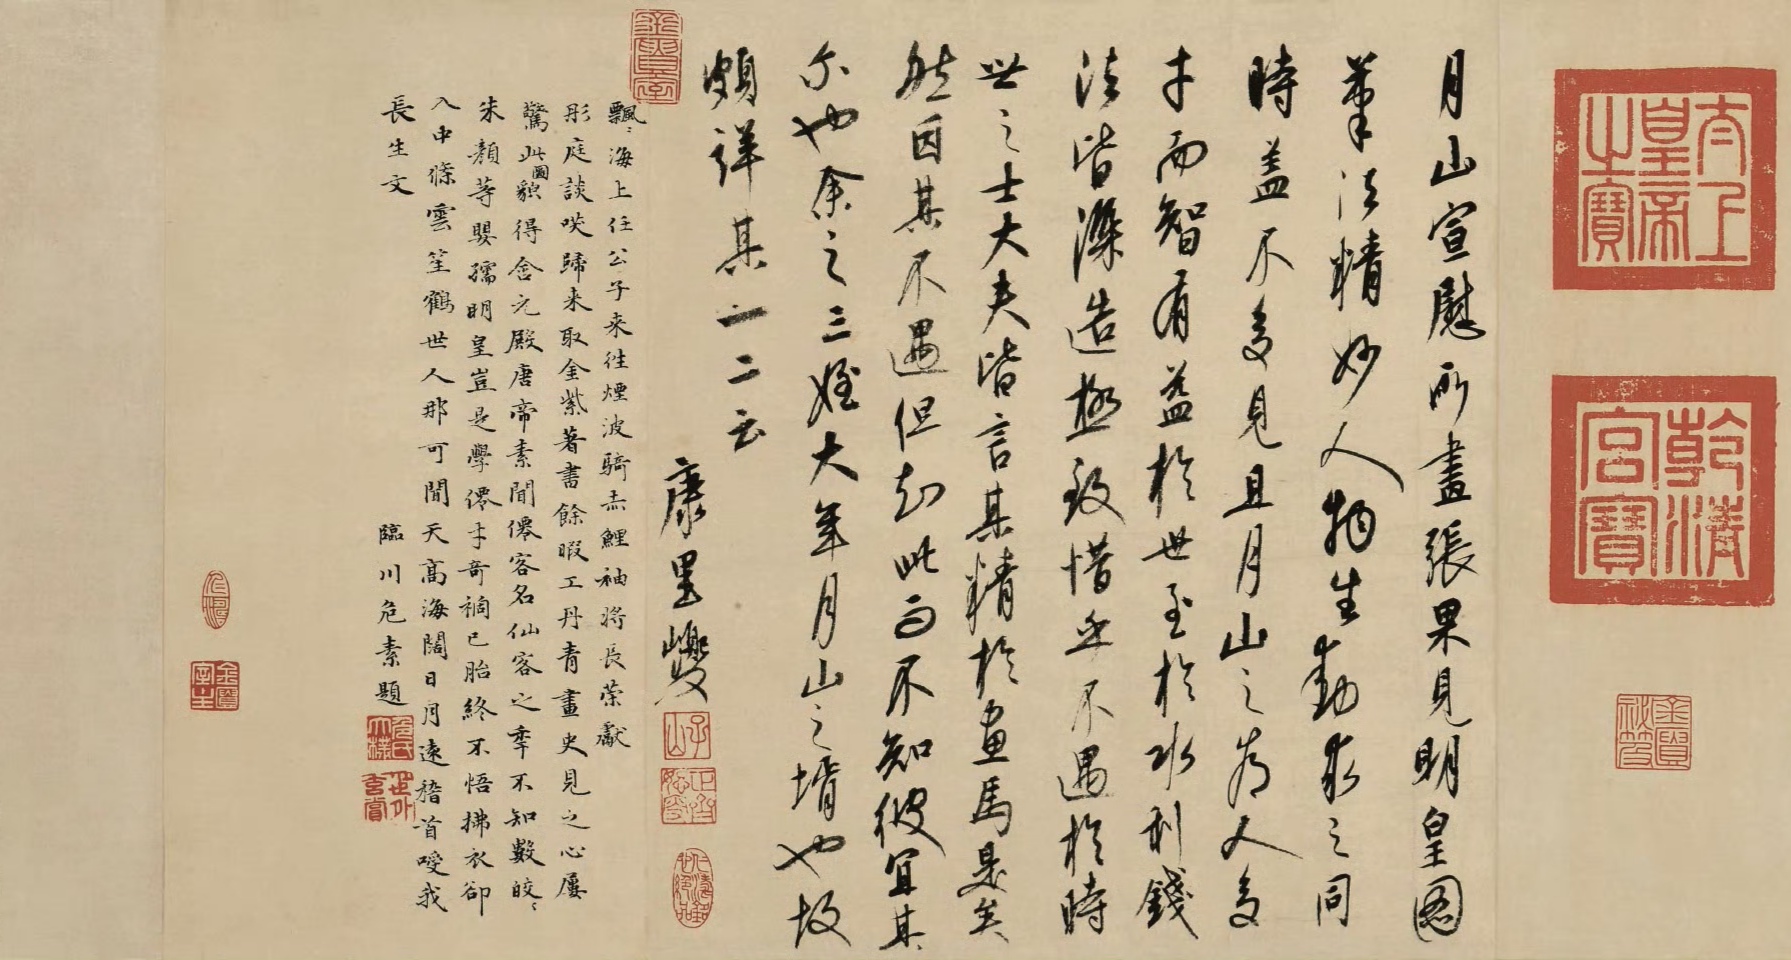 太上皇帝之寶
乾清宮寶
月山宣慰所畫張果見明皇圖
筆法精妙人物生動求之同
時蓋不多見且月山之為人多
才而智有益於世至於水利錢
法皆深造極致惜乎不遇於時
世之士大夫皆言其精於畫馬是矣
然因其不遇但知此而不知彼宜其
尔也余之三姪大年月山之壻也故
頗詳其一二云
康里巎
飄〻海上任公子来往煙波騎赤鯉袖将長策獻
彤庭談咲歸来取金紫著書餘暇工丹青畫史見之心屢
驚此圖貌得含元殿唐帝素聞僊客名仙客之年不知數皎〻
朱顏等嬰孺明皇豈是學僊才奇禍已胎終不悟拂衣卻
入中條雲笙鶴世人那可聞天髙海闊日月遠稽首嗳我
長生文
臨川危素題